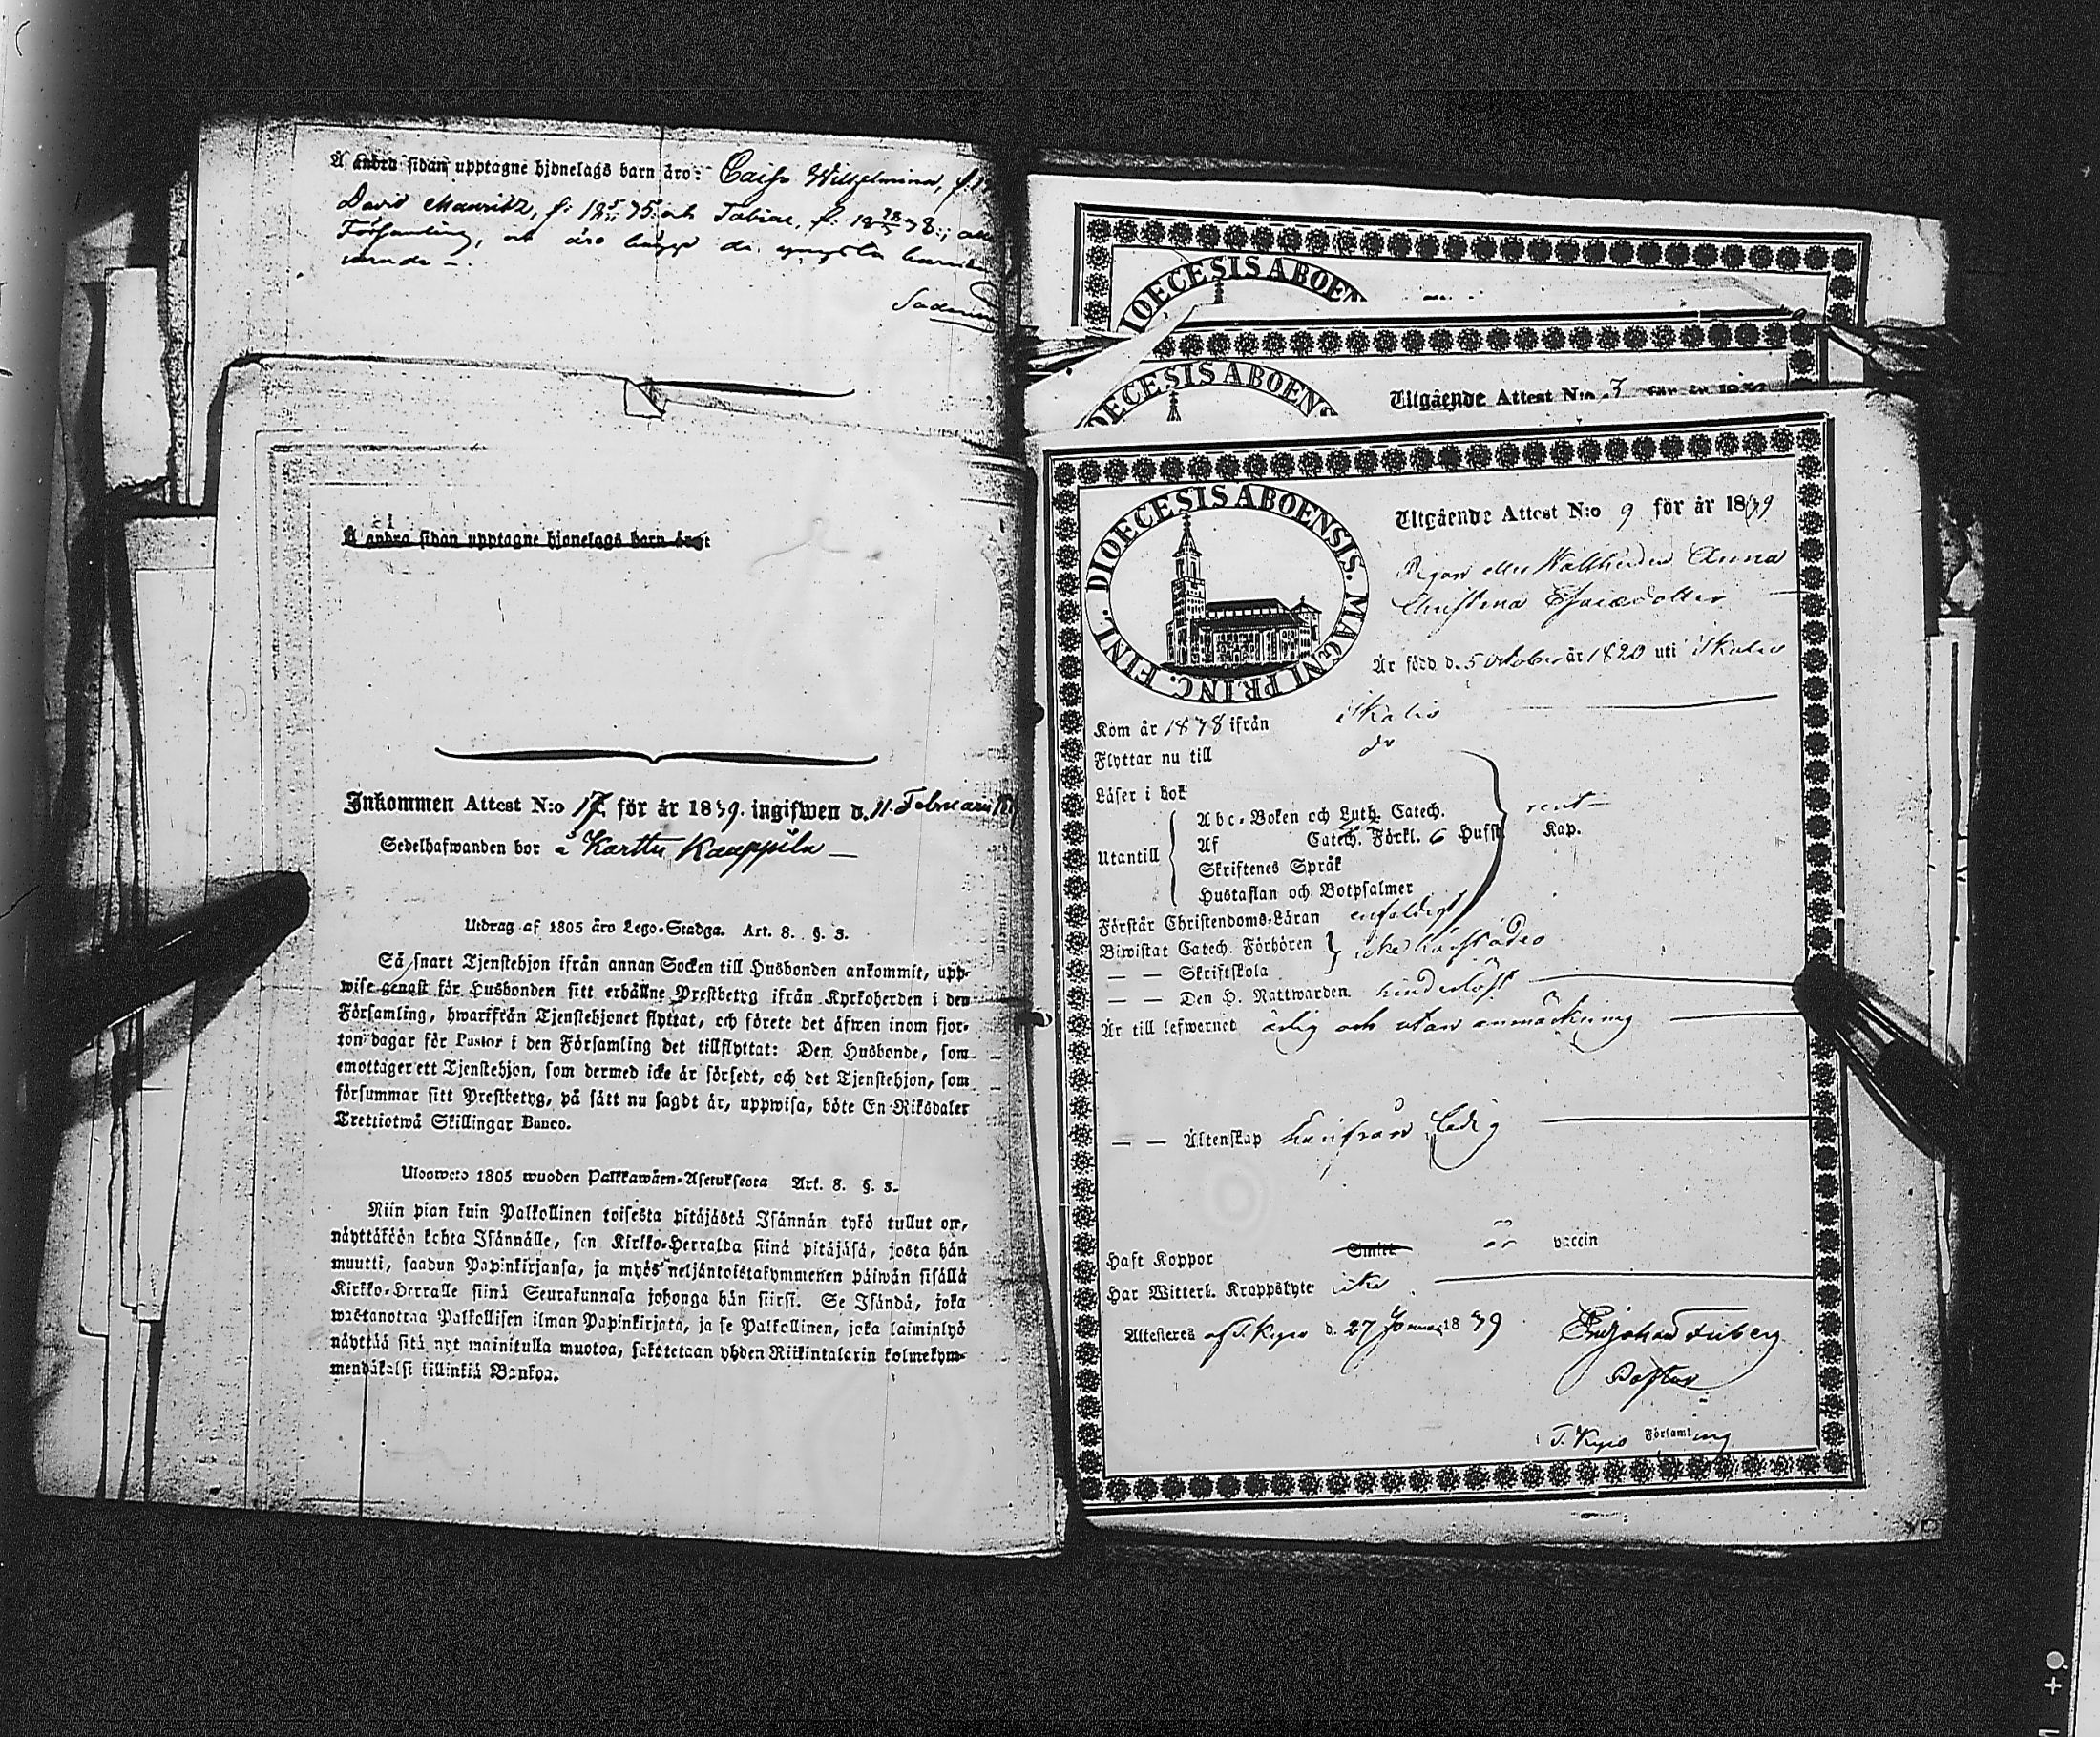 Å andra sidan upptagne hjonelags barn äro: Caisa Wilhelmina, f.
David Mauritz, f: 18 75. och Tobias, f. 18 78.;
Församling, och äro begge de yngsta barnen
Å andra sidan upptagne hjonelags barn äro:
Inkommen Attest N:o 17 för år 1879. ingifwen d. 11. Februarii
Sedelhafwanden bor å Karttu Kauppila
Utdrag af 1805 åro Lego-Stadga. Art. 8. §. 3.
Så snart Tjenstehjon ifrån annan Socken till Husbonden ankommit, upp-
wise genast för Husbonden sitt erhållne Prestbetyg ifrån Kyrkoherden i den
Församling, hwarifrån Tjenstehjonet flyttat, och förete det äfwen inom fjor-
ton dagar för Pastor i den Församling det tillflyttat: Den Husbonde, som
emottager ett Tjenstehjon, som dermed icke är försedt, och det Tjenstehjon, som
försummar sitt Prestbetyg, på sätt nu sagdt är, uppwisa, böte En Riksdaler
Trettiotwå Skillingar Banco.
Ulosweto 1805 wuoden Palkkawäen-Asetuksesta Art. 8. §. 3.
Niin pian kuin Palkollinen toisesta pitäjästä Isännän tykö tullut on,
näyttäköön kohta Isännälle, sen Kirkko-Herralda siinä pitäjäsä, josta hän
muutti, saadun Papinkirjansa, ja myös neljäntoistakymmenen päiwän sisällä
Kirkko-Herralle siinä Seurakunnasa johonga hän siirsi. Se Isändä, joka
wastanottaa Palkollisen ilman Papinkirjata, ja se Palkollinen, joka laiminlyö
näyttää sitä nyt mainitulla muotoa, sakotetaan yhden Riikintalarin kolmekym-
mendäkaksi killinkiä Bankoa.
DIOECESIS ABOEN
DIOECESIS ABOENS
Utgående Attest N:o 7 för år
DIOECESIS ABOENSIS. MAGNI PRINC. FINL.
Utgående Attest N:o 9 för år 1879
Pigan eller Wallhindan Anna
Christina Esaiædotter
Är född d. 5 october år 1820 uti Ikalis
Kom år 1878 ifrån Ikalis
Flyttar nu till do
Läser i bok rent
Utantill
Abc-Boken och Luth. Catech.
Af Catech. Förkl. 6 Hufst. Kap.
Skriftenes Språk
Hustaflan och Botpsalmer
Förstår Christendoms-Läran enfaldigt
Biwistat Catech. Förhören
— — Skriftskola
— — Den H. Nattwarden hinderlöst
Är till lefwernet ärlig och utan anmärkning
— — Äktenskap härifrån ledig
Haft Koppor Smitt är vaccin
Har Witterl. Kroppslyte icke
Attesteres af T. Kyro d. 27 Januari 1879
Pastor
i T. Kyro Församling